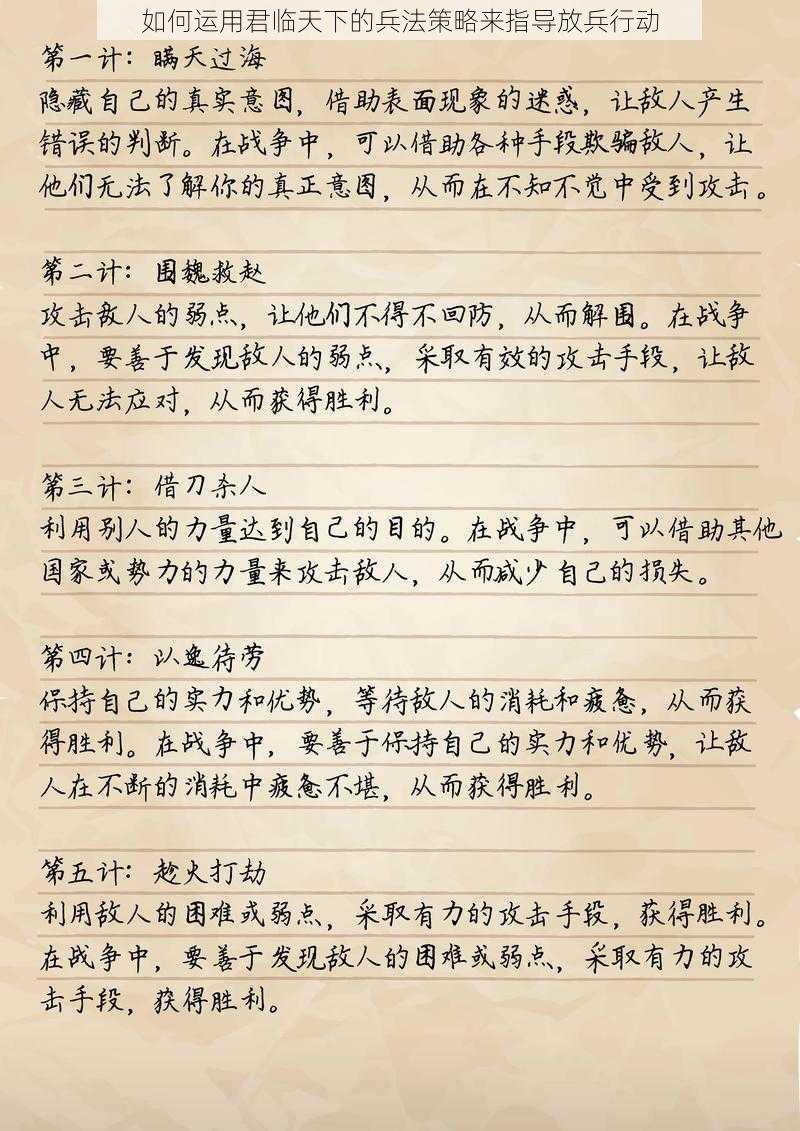 如何运用君临天下的兵法策略来指导放兵行动
第一计：瞒天过海
隐藏自己的真实意图，借助表面现象的迷惑，让敌人产生
错误的判断。在战争中，可以借助各种手段欺骗敌人，让
他们无法了解你的真正意图，从而在不知不觉中受到攻击。
第二计：围魏救赵
攻击敌人的弱点，让他们不得不回防，从而解围。在战争
中，要善于发现敌人的弱点，采取有效的攻击手段，让敌
人无法应对，从而获得胜利。
第三计：借刀杀人
利用别人的力量达到自己的目的。在战争中，可以借助其他
国家或势力的力量来攻击敌人，从而减少自己的损失。
第四计：以逸待劳
保持自己的实力和优势，等待敌人的消耗和疲惫，从而获
得胜利。在战争中，要善于保持自己的实力和优势，让敌
人在不断的消耗中疲惫不堪，从而获得胜利。
第五计：趁火打劫
利用敌人的困难或弱点，采取有力的攻击手段，获得胜利。
在战争中，要善于发现敌人的困难或弱点，采取有力的攻
击手段，获得胜利。